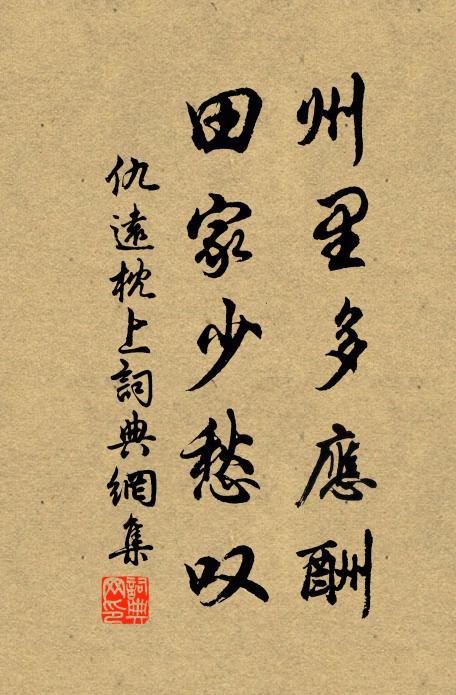 州里多應酬
田家少愁叹
仇遠枕上詞典網集
詞典网印